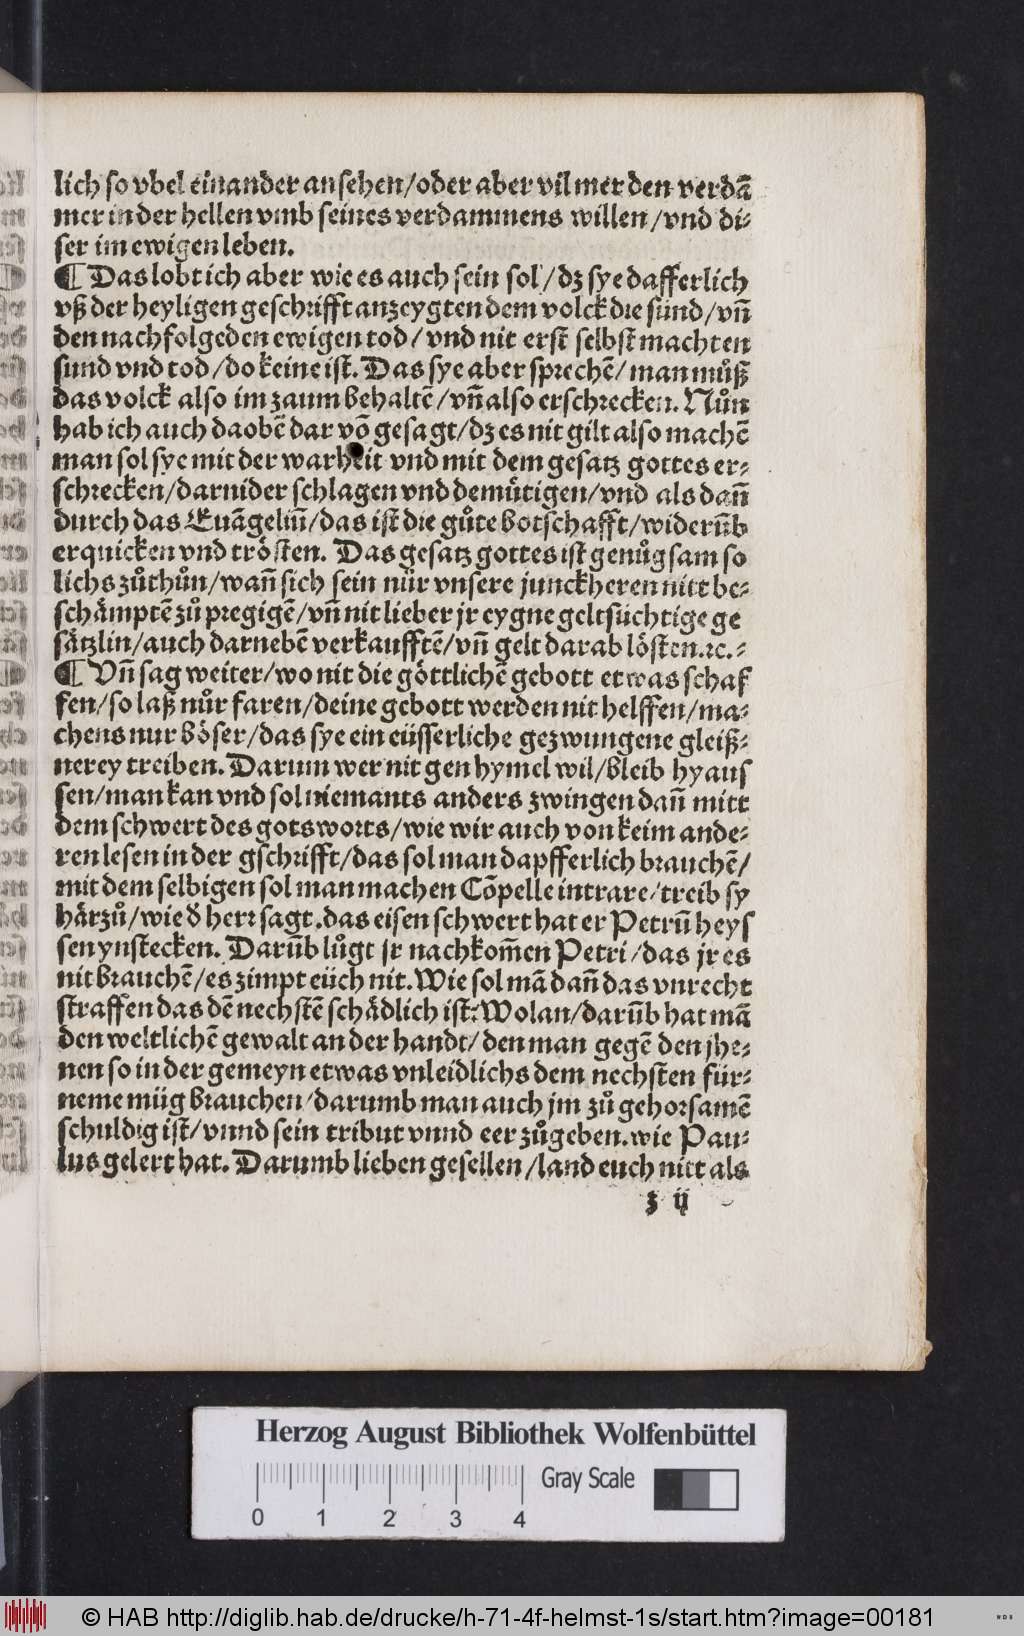 lich so vbel einander ansehen/oder aber vil mer den verdā
mer in der hellen vmb seines verdammens willen/vnd di⸗
ser im ewigen leben.
¶ Das lobt ich aber wie es auch sein sol/dz sye dafferlich
vß der heyligen geschrifft anzeygten dem volck die sünd/vñ
den nachfolgeden ewigen tod/vnd nit erst selbst machten
sund vnd tod/do keine ist. Das sye aber sprechē/man můß
das volck also im zaum behaltē/vñ also erschrecken. Nůn
hab ich auch daobē dar vō gesagt/dz es nit gilt also machē
man sol sye mit der warheit vnd mit dem gesatz gottes er⸗
schrecken/darnider schlagen vnd demütigen/vnd als dañ
durch das Euāgeliū/das ist die gůte botschafft/widerūb
erquicken vnd trösten. Das gesatz gottes ist genůgsam so
lichs zůthůn/wañ sich sein nür vnsere junckheren nitt be⸗
schämptē zů pregigē/vñ nit lieber jr eygne geltsüchtige ge
sätzlin/auch darnebē verkaufftē/vñ gelt darab lösten.ꝛc.⸗
¶ Vñ sag weiter/wo nit die göttlichē gebott etwas schaf
fen/so laß nůr faren/deine gebott werden nit helffen/ma⸗
chens nur böser/das sye ein eüsserliche gezwungene gleiß⸗
nerey treiben. Darum wer nit gen hymel wil/bleib hyaus
sen/man kan vnd sol niemants anders zwingen dañ mitt
dem schwert des gotsworts/wie wir auch von keim ande⸗
ren lesen in der gschrifft/das sol man dapfferlich brauchē/
mit dem selbigen sol man machen Cōpelle intrare/treib sy
härzů/wie d̄ herr sagt.das eisen schwert hat er Petrū heys
sen ynstecken. Darūb lůgt jr nachkom̄en Petri/das jr es
nit brauchē/es zimpt eüch nit. Wie sol mā dañ das vnrecht
straffen das dē nechstē schädlich ist: Wolan/darūb hat mā
den weltlichē gewalt an der handt/den man gegē den jhe⸗
nen so in der gemeyn etwas vnleidlichs dem nechsten für⸗
neme müg brauchen/darumb man auch jm zů gehorsamē
schuldig ist/vnnd sein tribut vnnd eer zůgeben.wie Pau⸗
lus gelert hat. Darumb lieben gesellen/land euch nitt als
z ij
Herzog August Bibliothek Wolfenbüttel
Gray Scale
0 1 2 3 4
© HAB http://diglib.hab.de/drucke/h-71-4f-helmst-1s/start.htm?image=00181